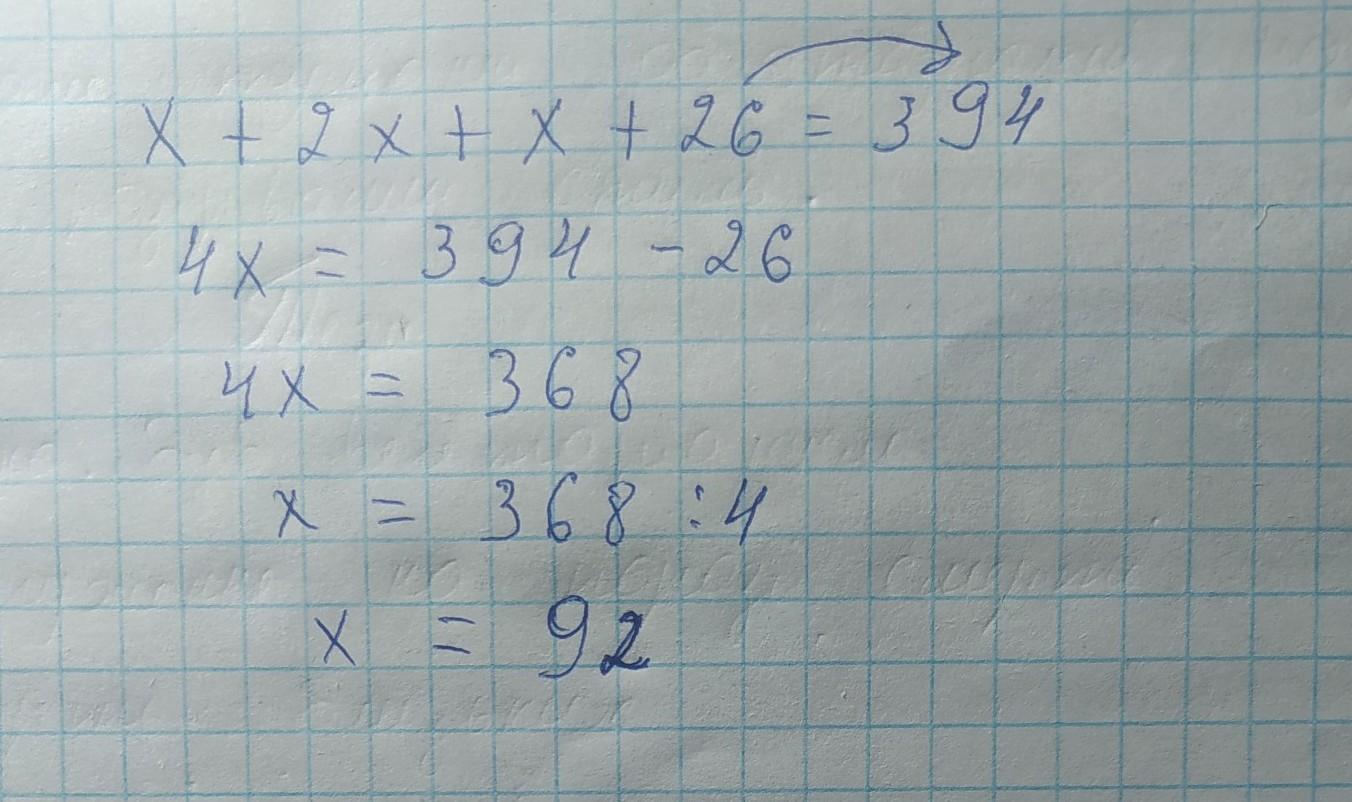 x + 2x + x + 26 = 394
4x = 394 - 26
4x = 368
x = 368 : 4
x = 92